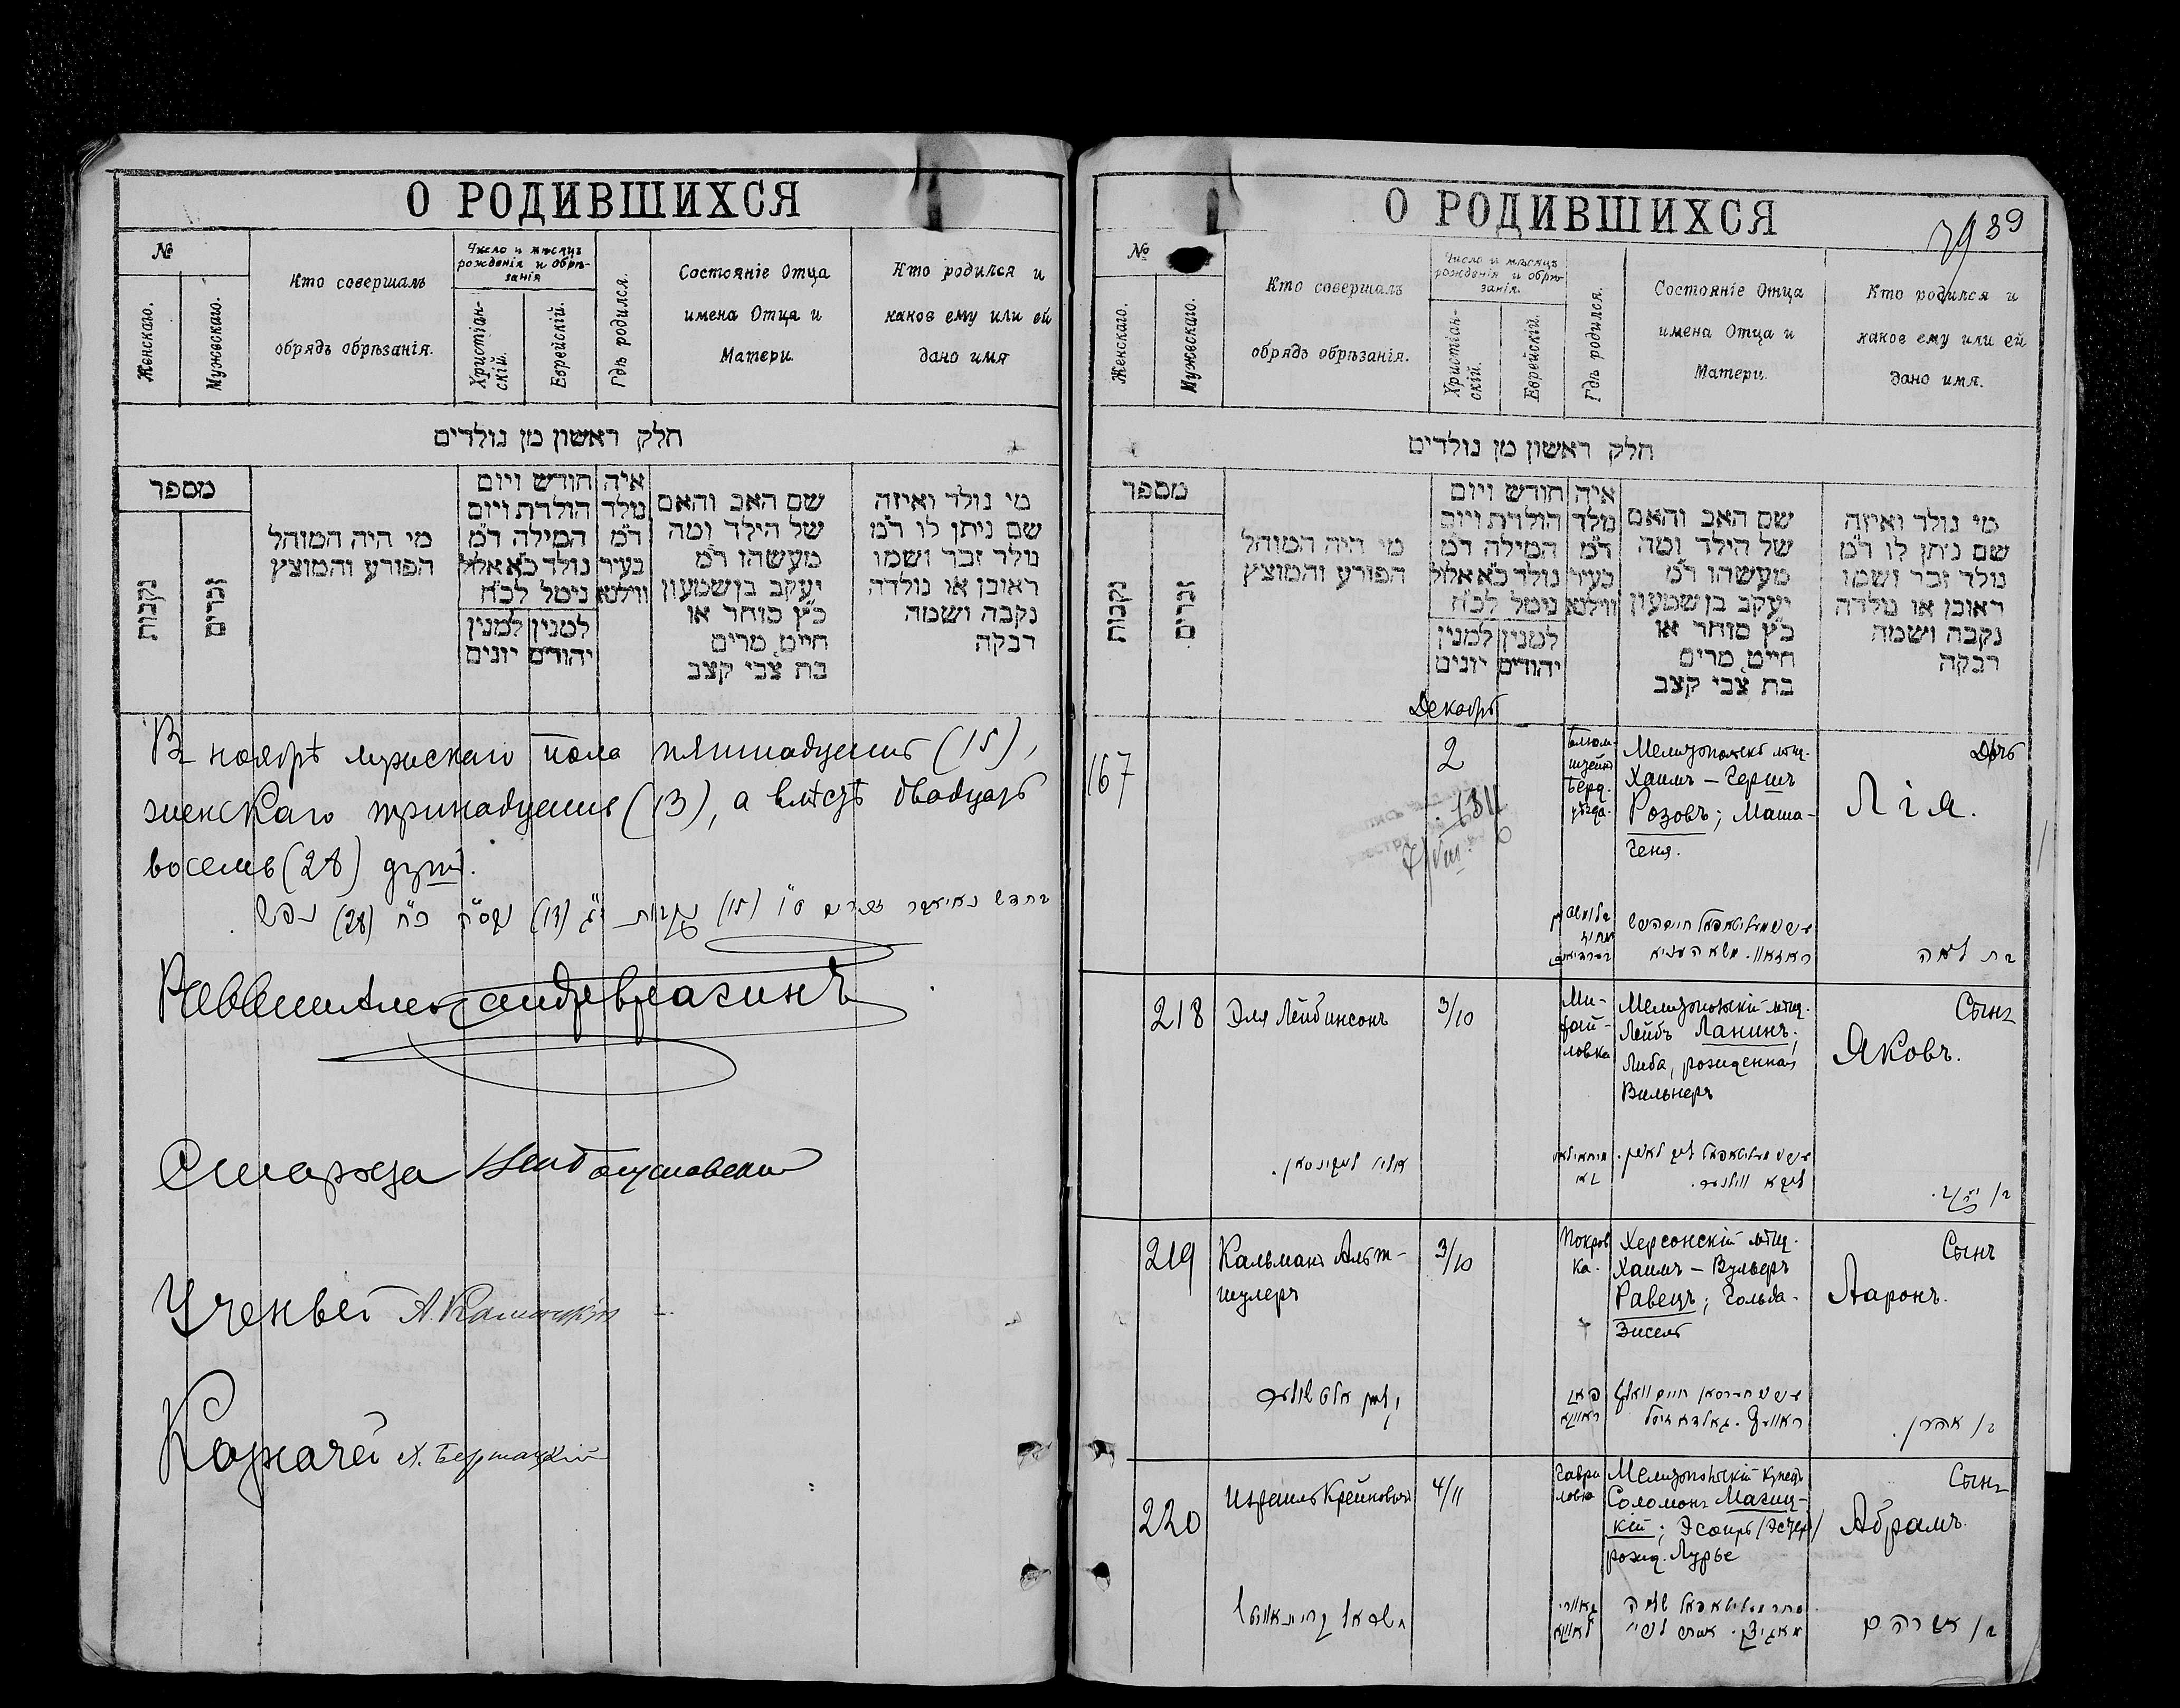 О РОДИВШИХСЯ
№
Женскаго.
Мужескаго.
Кто совершалъ
обрядъ обрѣзанія.
Число и мѣсяцъ
рожденія и обрѣ-
занія
Христіан-
скій.
Еврейскій.
Гдѣ родился.
Состояніе Отца
имена Отца и
Матери.
Кто родился и
каков ему или ей
дано имя
חלק ראשון מן נולדים
מספר
נקבות
זכרים
מי היה המוהל
הפורע והמוצץ
חודש ויום
הולדת ויום
המילה ד״מ
נולד כ״א אלול
נימל לכ״ח
למנין למנין
יהודים יונים
איה
נולד
ד״מ
בעיר
ווילנא
שם האב והאם
של הילד ומה
מעשהו ד״מ
יעקב בן שמעון
כ״ץ סוחר או
חייט, מרים
בת צבי קצב
מי נולד ואיזה
שם ניתן לו ד״מ
נולד זכר ושמו
ראובן או נולדה
נקבה ושמה
רבקה
В ноябрѣ мужскаго пола пятнадцать (15),
женскаго тринадцать (13), а вмѣстѣ двадцать
восемь (28) душ.
בחדש נאיאבר זכרים ט״ו (15) נקבות י״ג (13) כ״ח (28) נפש
Раввин Александр Брагинъ
Староста
Ученый А.
Казначей
О РОДИВШИХСЯ
39
№
Женскаго.
Мужескаго.
Кто совершалъ
обрядъ обрѣзанія.
Число и мѣсяцъ
рожденія и обрѣ-
занія.
Христіан-
скій.
Еврейскій.
Гдѣ родился.
Состояніе Отца
имена Отца и
Матери.
Кто родился и
каков ему или ей
дано имя.
חלק ראשון מן נולדים
מספר
נקבות
זכרים
מי היה המוהל
הפורע והמוצץ
חודש ויום
הולדת ויום
המילה ד״מ
נולד כ״א אלול
נימל לכ״ח
למנין למנין
יהודים יונים
איה
נולד
ד״מ
בעיר
ווילנא
שם האב והאם
של הילד ומה
מעשהו ד״מ
יעקב בן שמעון
כ״ץ סוחר או
חייט, מרים
בת צבי קצב
מי נולד ואיזה
שם ניתן לו ד״מ
נולד זכר ושמו
ראובן או נולדה
נקבה ושמה
רבקה
Декабрь
167
2
Берд.
уѣзда.
Мелитопольск. мѣщ.
Хаимъ – Гершъ
Розовъ; Маша-
Геня.
Дочь
Лія.
בת לאה
218
Эля Лейбинсонъ
3/10
Ми-
хай-
ловка
Мелитопольскій мѣщ.
Лейбъ Ланинъ;
Либа, рожденная
Вильнеръ
Сынъ
Яковъ.
אליו לייבינסאן.
ליבא ווילנער.
בן יעקב.
219
Кальманъ Альт-
шулеръ
3/10
Покров
ка.
Херсонскій мѣщ.
Хаимъ – Вульфъ
Равецъ; Гольда-
Зисель
Сынъ
Ааронъ.
קלמן אלטשולער
בן אהרן.
220
Израиль Крейновичъ
4/11
Гаври
ловка
Мелитопольскій купецъ
Соломонъ Магиц-
кій; Эсѳирь /Эстеръ/
рожд. Лурье
Сынъ
Абрамъ.
בן אברהם